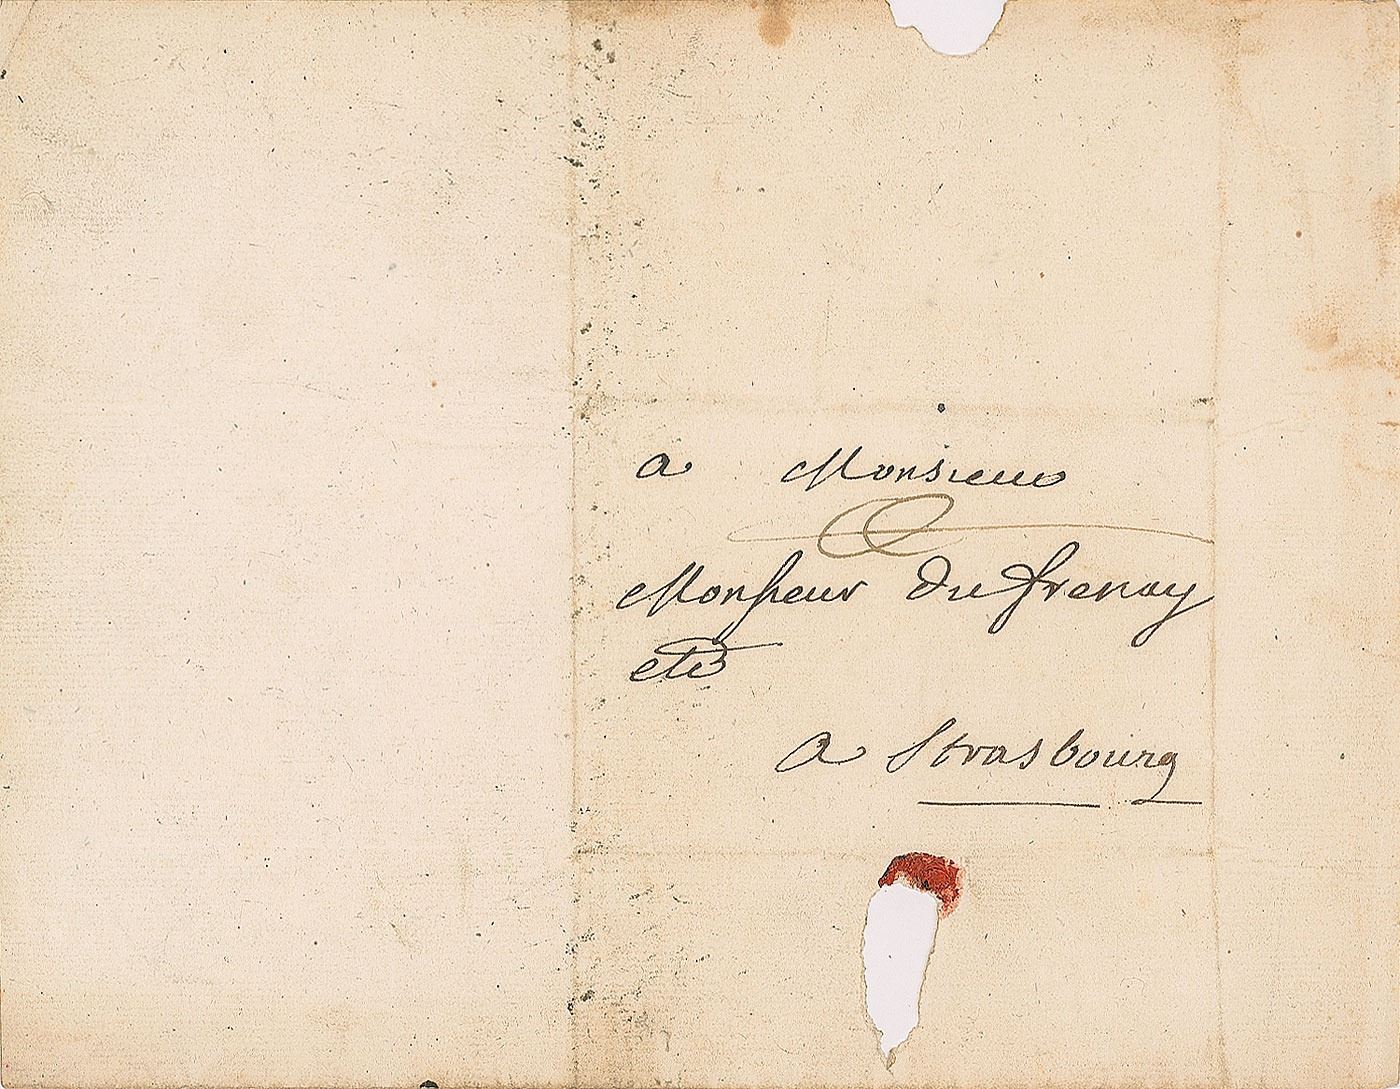 a Monsieur
Monsieur Du frenay
etc
a Strasbourg